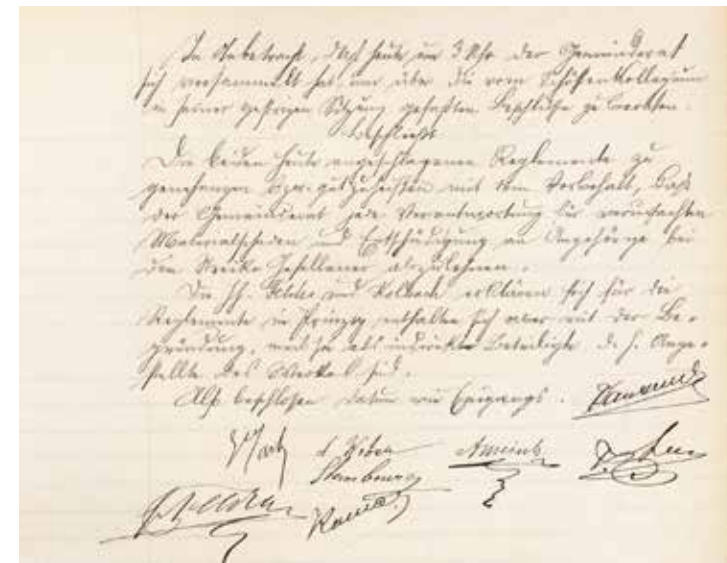 In Anbetracht, daß heute um 3 Uhr der Gemeinderat
sich versammelt hat um über die vom Schöffenkollegium
in seiner gestrigen Sitzung gefaßten Beschlüße zu beraten.
beschließt
Die beiden heute angeschlagenen Reglemente zu
genehmigen bzw. gutzuheißen mit dem Vorbehalt, daß
der Gemeinderat jede Verantwortung für verursachten
Materialschaden und Entschädigung an Angehörige bei
den Streike Gefallener abzulehnen.
Die HH. und Kolbach erklären sich für die
Reglemente im Prinzip enthalten sich aber mit der Be-
gründung, weil sie als indirekte Beteiligte d. h. Ange-
stellte des Werkes sind.
Also beschlossen Datum wie Eingangs.